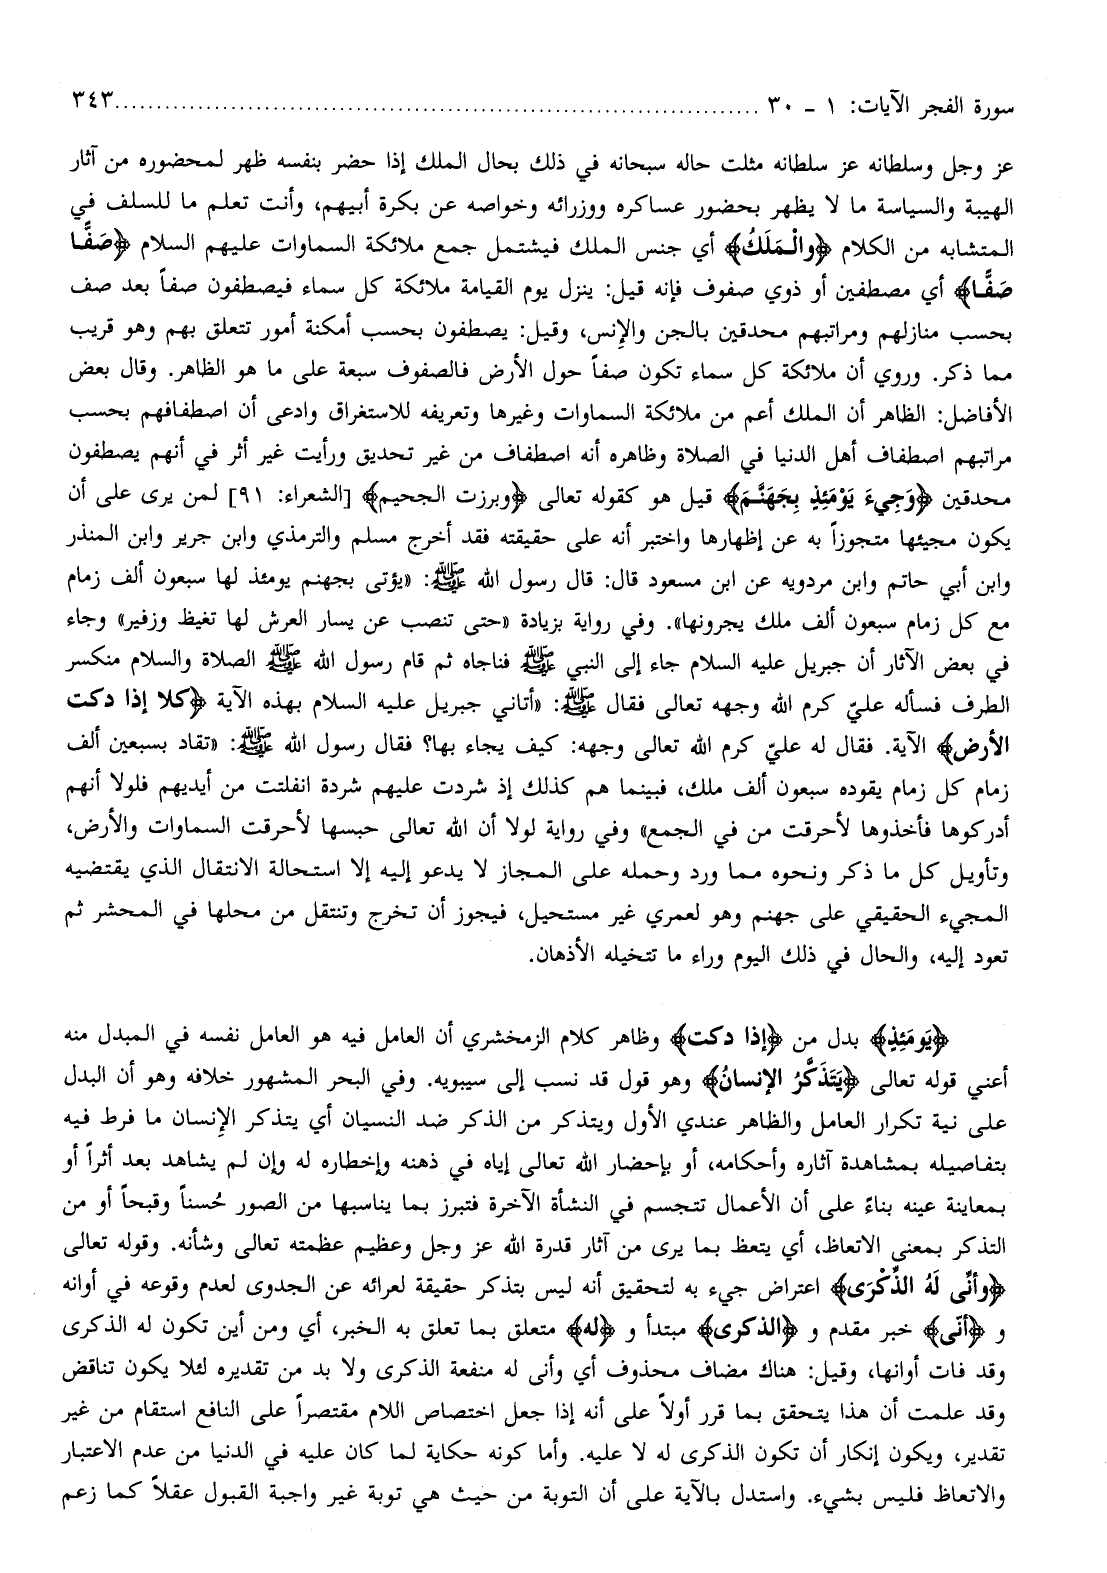 سورة الفجر الآيات: ١ - ٣٠ ............................................................ ٣٤٣
عز وجل وسلطانه عز سلطانه مثلت حاله سبحانه في ذلك بحال الملك إذا حضر بنفسه ظهر لمحضوره من آثار
الهيبة والسياسة ما لا يظهر بحضور عساكره ووزرائه وخواصه عن بكرة أبيهم، وأنت تعلم ما للسلف في
المتشابه من الكلام ﴿والْمَلَكُ﴾ أي جنس الملك فيشتمل جمع ملائكة السماوات عليهم السلام ﴿صَفًّا
صَفًّا﴾ أي مصطفين أو ذوي صفوف فإنه قيل: ينزل يوم القيامة ملائكة كل سماء فيصطفون صفاً بعد صف
بحسب منازلهم ومراتبهم محدقين بالجن والإِنس، وقيل: يصطفون بحسب أمكنة أمور تتعلق بهم وهو قريب
مما ذكر. وروي أن ملائكة كل سماء تكون صفاً حول الأرض فالصفوف سبعة على ما هو الظاهر. وقال بعض
الأفاضل: الظاهر أن الملك أعم من ملائكة السماوات وغيرها وتعريفه للاستغراق وادعى أن اصطفافهم بحسب
مراتبهم اصطفاف أهل الدنيا في الصلاة وظاهره أنه اصطفاف من غير تحديق ورأيت غير أثر في أنهم يصطفون
محدقين ﴿وَجِيءَ يَوْمَئِذٍ بِجَهَنَّمَ﴾ قيل هو كقوله تعالى ﴿وبرزت الجحيم﴾ [الشعراء: ٩١] لمن يرى على أن
يكون مجيئها متجوزاً به عن إظهارها واختبر أنه على حقيقته فقد أخرج مسلم والترمذي وابن جرير وابن المنذر
وابن أبي حاتم وابن مردويه عن ابن مسعود قال: قال رسول الله ﷺ: «يؤتى بجهنم يومئذ لها سبعون ألف زمام
مع كل زمام سبعون ألف ملك يجرونها». وفي رواية بزيادة «حتى تنصب عن يسار العرش لها تغيظ وزفير» وجاء
في بعض الآثار أن جبريل عليه السلام جاء إلى النبي ﷺ فناجاه ثم قام رسول الله ﷺ الصلاة والسلام منكسر
الطرف فسأله عليّ كرم الله وجهه تعالى فقال ﷺ: «أتاني جبريل عليه السلام بهذه الآية ﴿كلا إذا دكت
الأرض﴾ الآية. فقال له عليّ كرم الله تعالى وجهه: كيف يجاء بها؟ فقال رسول الله ﷺ: «تقاد بسبعين ألف
زمام كل زمام يقوده سبعون ألف ملك، فبينما هم كذلك إذ شردت عليهم شردة انفلتت من أيديهم فلولا أنهم
أدركوها فأخذوها لأحرقت من في الجمع» وفي رواية لولا أن الله تعالى حبسها لأحرقت السماوات والأرض،
وتأويل كل ما ذكر ونحوه مما ورد وحمله على المجاز لا يدعو إليه إلا استحالة الانتقال الذي يقتضيه
المجيء الحقيقي على جهنم وهو لعمري غير مستحيل، فيجوز أن تخرج وتنتقل من محلها في المحشر ثم
تعود إليه، والحال في ذلك اليوم وراء ما تتخيله الأذهان.
﴿يَومَئِذٍ﴾ بدل من ﴿إذا دكت﴾ وظاهر كلام الزمخشري أن العامل فيه هو العامل نفسه في المبدل منه
أعني قوله تعالى ﴿يَتَذَكَّرُ الإنسانُ﴾ وهو قول قد نسب إلى سيبويه. وفي البحر المشهور خلافه وهو أن البدل
على نية تكرار العامل والظاهر عندي الأول ويتذكر من الذكر ضد النسيان أي يتذكر الإِنسان ما فرط فيه
بتفاصيله بمشاهدة آثاره وأحكامه، أو بإحضار الله تعالى إياه في ذهنه وإخطاره له وإن لم يشاهد بعد أثراً أو
بمعاينة عينه بناءً على أن الأعمال تتجسم في النشأة الآخرة فتبرز بما يناسبها من الصور حُسناً وقبحاً أو من
التذكر بمعنى الاتعاظ، أي يتعظ بما يرى من آثار قدرة الله عز وجل وعظيم عظمته تعالى وشأنه. وقوله تعالى
﴿وأنّى لَهُ الذِّكْرَى﴾ اعتراض جيء به لتحقيق أنه ليس بتذكر حقيقة لعرائه عن الجدوى لعدم وقوعه في أوانه
و ﴿أنّى﴾ خبر مقدم و ﴿الذكرى﴾ مبتدأ و ﴿له﴾ متعلق بما تعلق به الخبر، أي ومن أين تكون له الذكرى
وقد فات أوانها، وقيل: هناك مضاف محذوف أي وأنى له منفعة الذكرى ولا بد من تقديره لئلا يكون تناقض
وقد علمت أن هذا يتحقق بما قرر أولاً على أنه إذا جعل اختصاص اللام مقتصراً على النافع استقام من غير
تقدير، ويكون إنكار أن تكون الذكرى له لا عليه. وأما كونه حكاية لما كان عليه في الدنيا من عدم الاعتبار
والاتعاظ فليس بشيء. واستدل بالآية على أن التوبة من حيث هي توبة غير واجبة القبول عقلاً كما زعم